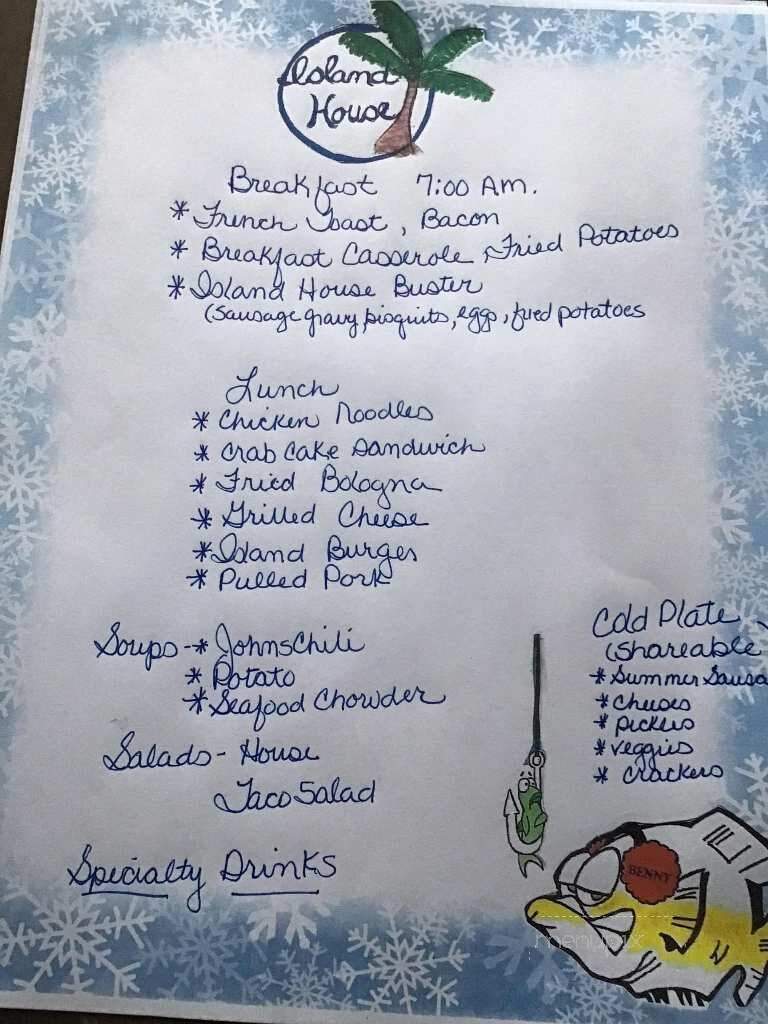 Island
House
Breakfast 7:00 AM.
* French Toast, Bacon
* Breakfast Casserole, Fried Potatoes
* Island House Buster
(Sausage gravy, bisquits, eggs, fried potatoes
Lunch
* Chicken Noodles
* Crab Cake Sandwich
* Fried Bologna
* Grilled Cheese
* Island Burger
* Pulled Pork
Soups - * Johns Chili
* Potato
* Seafood Chowder
Salads - House
Taco Salad
Specialty Drinks
Cold Plate
(Shareable
* Summer Sausa
* Cheeses
* Pickles
* Veggies
* Crackers
BENNY
menupix